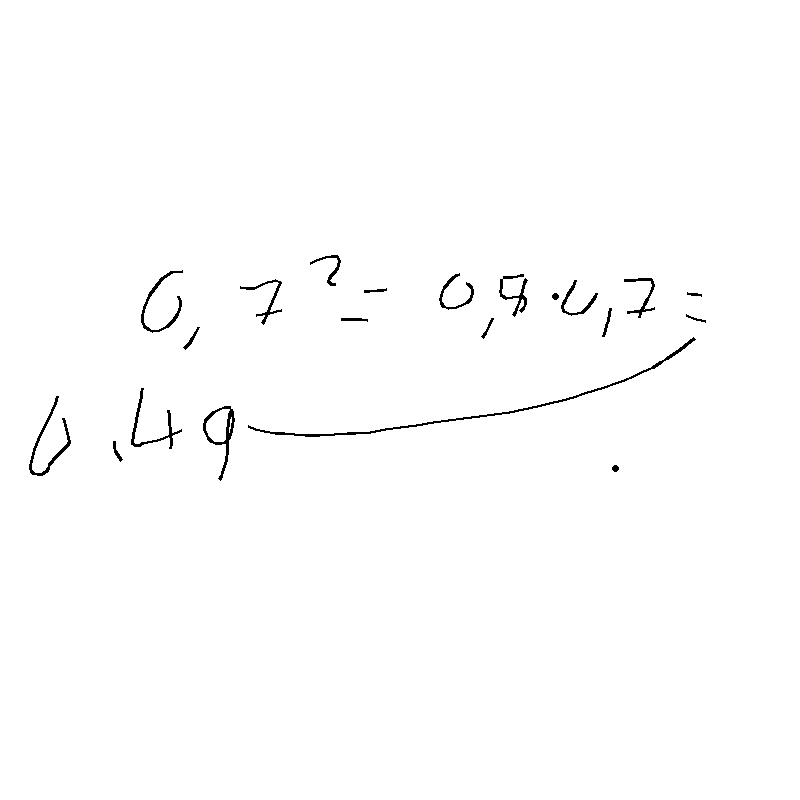 0,7² = 0,8·0,7 =
0,49